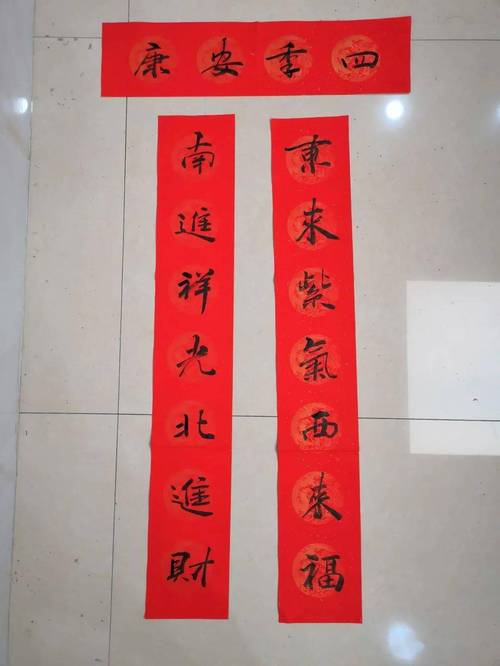 四季安康
東來紫氣西來福
南進祥光北進財